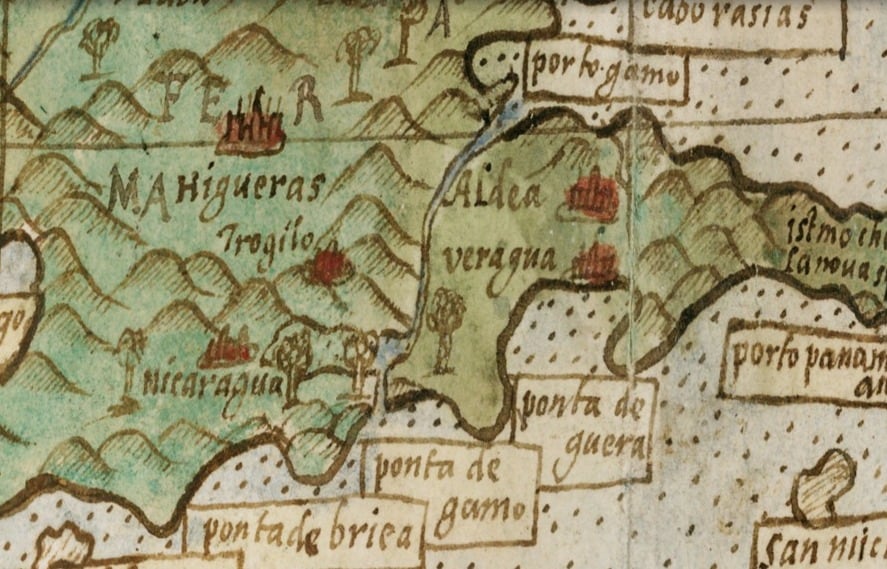 cabo rasias
porto gamo
FER
MA
Higueras
Aldea
Trogilo
veragua
istmo
la nova
nicaragua
porto panam
ponta de
guera
ponta de
gamo
ponta de briea
san mic